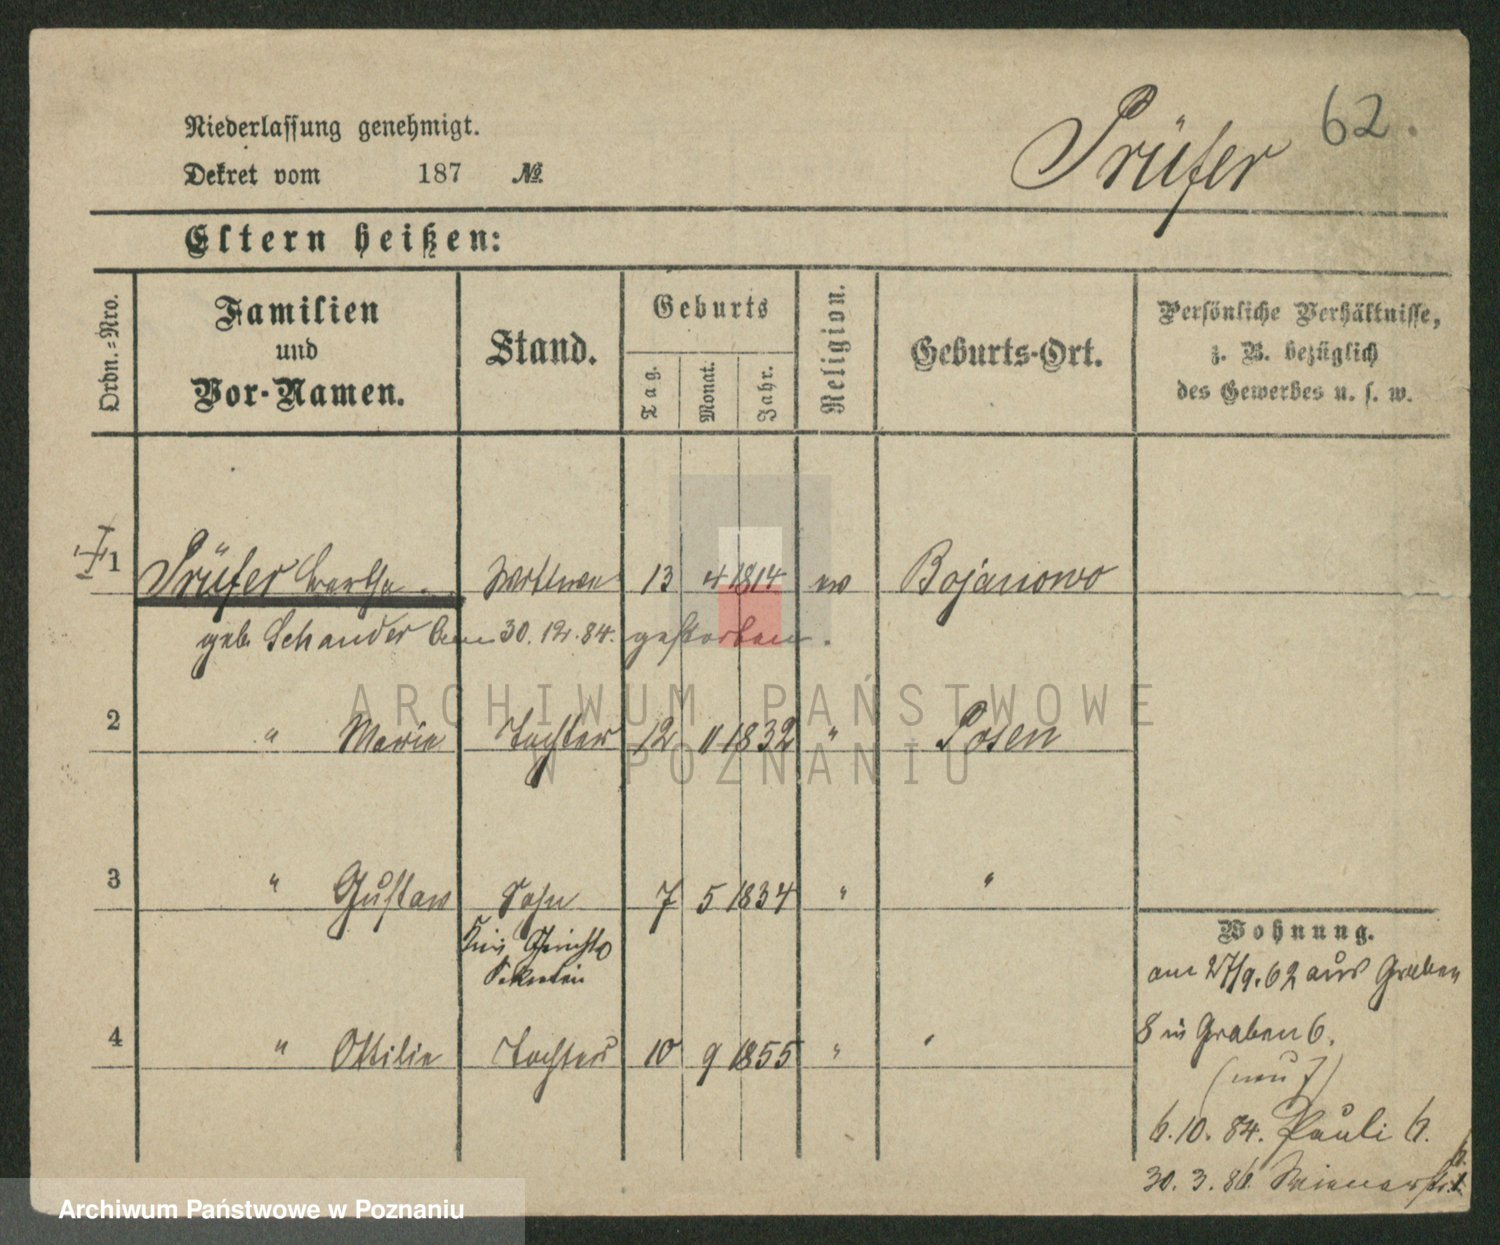 62.
Prüfer
Niederlassung genehmigt.
Dekret vom 187 №
Eltern heißen:
Ordn.-Nro.
Familien
und
Vor-Namen.
Stand.
Geburts
Tag.
Monat.
Jahr.
Religion.
Geburts-Ort.
Persönliche Verhältnisse,
z. B. bezüglich
des Gewerbes u. s. w.
1 Prüfer Bertha. Wittwe 13 4 1814 ev Bojanowo
geb. Schander am 30.12.84. gestorben.
2 " Marie Tochter 12 11 1832 " Posen
3 " Gustav Sohn 7 5 1834 " "
Kreis Gerichts
Sekretair
4 " Ottilie Tochter 10 9 1855 " "
Wohnung.
am 27/9.62 aus Graben
8 in Graben 6.
(neu 7)
6.10.84. Pauli 6.
30.3.86. Wienerstr. 1.
ARCHIWUM PAŃSTWOWE
W POZNANIU
Archiwum Państwowe w Poznaniu